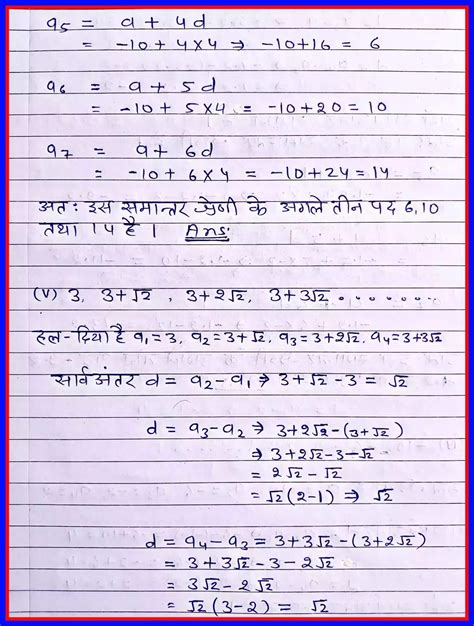 a5 = a + 4d
= -10 + 4×4 ⇒ -10+16 = 6
a6 = a + 5d
= -10 + 5×4 = -10+20 = 10
a7 = a + 6d
= -10 + 6×4 = -10+24 = 14
अतः इस समान्तर श्रेणी के अगले तीन पद 6,10
तथा 14 है । Ans:
(v) 3, 3+√2 , 3+2√2 , 3+3√2 .........
हल- दिया है a1=3, a2=3+√2, a3=3+2√2, a4=3+3√2
सार्वअंतर d = a2-a1 ⇒ 3+√2-3 = √2
d = a3-a2 ⇒ 3+2√2-(3+√2)
⇒ 3+2√2-3-√2
= 2√2-√2
= √2(2-1) ⇒ √2
d = a4-a3 = 3+3√2-(3+2√2)
= 3+3√2-3-2√2
= 3√2-2√2
= √2(3-2) = √2